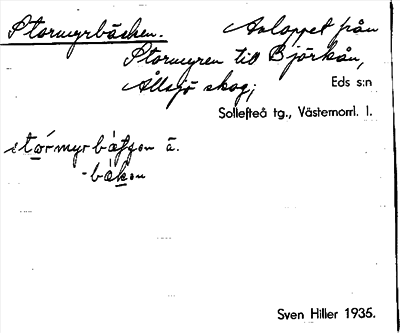 Stormyrbäcken. Avloppet från
Stormyren till Björkån,
Ållsjö skog; Eds s:n
Sollefteå tg., Västernorrl. l.
Sven Hiller 1935.